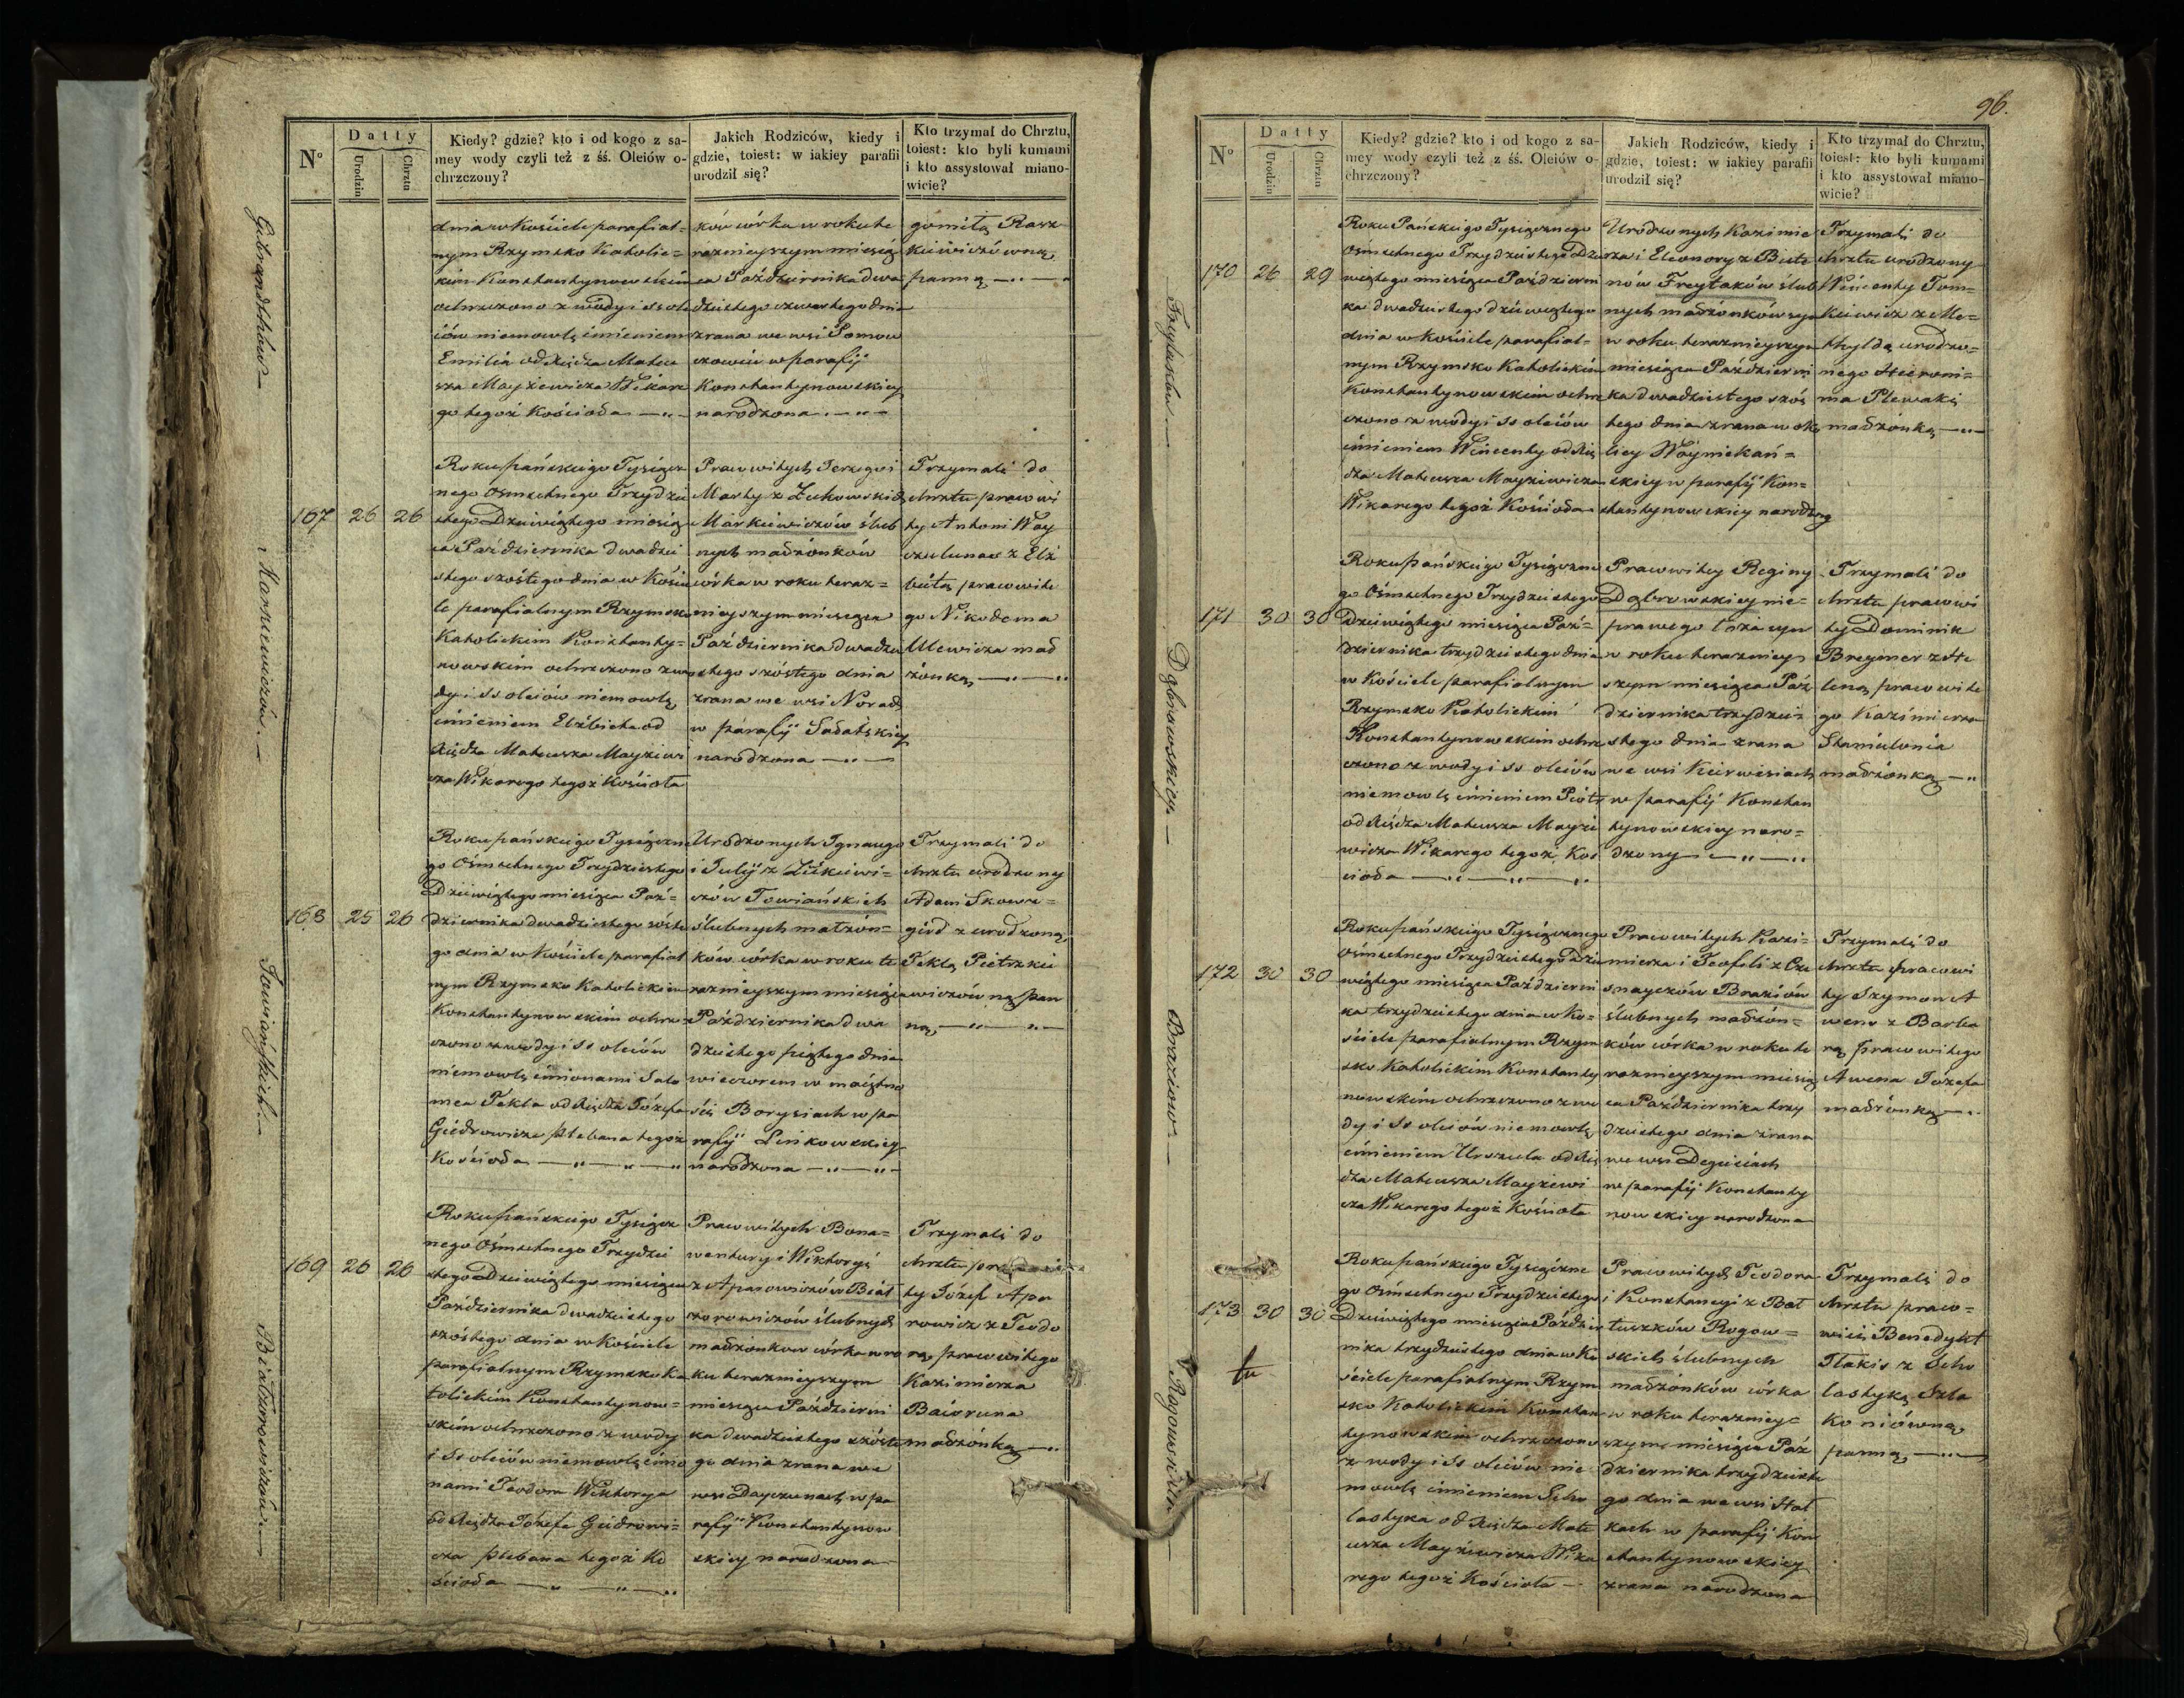 Datty
N°
Urodzin
Chrztu
Kiedy? gdzie? kto i od kogo z sa-
mey wody czyli też z śś. Oleiów o-
chrzczony?
Jakich Rodziców, kiedy i
gdzie, toiest: w iakiey parafii
urodził się?
Kto trzymał do Chrztu,
toiest: kto byli kumami
i kto assystował miano-
wicie?
dnia w Kościele parafial=
nym Rzymsko Katolic=
kim Konstantynowskim
ochrzczono z wody i ss ole
iów niemowlę imieniem
Emilia od Xiędza Mateu
sza Mayzewicza Wikare
go tegoż Kościoła
ków córka w roku te
raznieyszym miesią
ca Października dwa
dziestego czwartego dnia
zrana we wsi
w parafij
Konstantynowskiey
narodzona
gomiłą Rasz
kiewiczówną
panną
167 26 26
Marsiewiczów
Roku pańskiego Tysiącz
nego Osmsetnego Trzydzie
stego Dziewiątego miesią
ca Października dwadzie
stego szóstego dnia w Koście
le parafialnym Rzymsko
Katolickim Konstanty=
nowskim ochrzczono z wo
dy i ss oleiów niemowlę
imieniem Elżbieta od
Xiędza Mateusza Mayzewi
cza Wikarego tegoż Kościoła
Prawowitych Jerzego i
Marty z Żukowskich
Markiewiczów ślub
nych małżonków
córka w roku teraz=
nieyszym miesiąca
Października dwadzie
stego szóstego dnia
zrana we wsi
w parafij
narodzona
Trzymali do
chrztu prawowi
ty Antoni Way
z Elż
bietą prawowite
go Nikodema
mał
żonką
168 25 26
Towiańskich
Roku pańskiego Tysiączne
go Osmsetnego Trzydziestego
Dziewiątego miesiąca Paź=
dziernika dwadziestego szóste
go dnia w Kościele parafial
nym Rzymsko Katolickim
Konstantynowskim ochrz
czono z wody i ss oleiów
niemowlę imionami Salo
mea Tekla od Xiędza Józefa
Giedrowicza Plebana tegoż
Kościoła
Urodzonych Ignacego
i Julij z
czów Towiańskich
ślubnych małżon=
ków córka w roku te
raznieyszym miesiąca
Października dwa
dziestego piątego dnia
wieczorem w maiętno
ści Borysiach w pa
rafij Linkowskiey
narodzona
Trzymali do
chrztu urodzony
Adam Skow
gird z urodzoną
Teklą Pietrzkie
wiczówną pan
ną
169 26 26
Białozorowiczów
Roku pańskiego Tysiącz
nego Ośmsetnego Trzydzie
stego Dziewiątego miesiąca
Października dwadziestego
szóstego dnia w Kościele
parafialnym Rzymsko Ka
tolickim Konstantynow=
skim ochrzczono z wody
i ss oleiów niemowlę imio
nami Teodora Wiktorya
od Xiędza Józefa Giedrowi=
cza Plebana tegoż Ko
ścioła
Prawowitych Bona=
wentury i Wiktoryi
z Aparowiczów Biał
zorowiczów ślubnych
małżonków córka w ro
ku teraznieyszym
miesiąca Październi
ka dwadziestego szóste
go dnia zrana we
wsi Dayczunach w pa
rafij Konstantynow
skiey narodzona
Trzymali do
chrztu
ty Józef Apa
rowicz z Teodo
rą prawowitego
Kazimierza
Baioruna
małżonką
96.
Datty
N°
Urodzin
Chrztu
Kiedy? gdzie? kto i od kogo z sa-
mey wody czyli też z śś. Oleiów o-
chrzczony?
Jakich Rodziców, kiedy i
gdzie, toiest: w iakiey parafii
urodził się?
Kto trzymał do Chrztu,
toiest: kto byli kumami
i kto assystował miano-
wicie?
170 26 29
Freytaków
Roku Pańskiego Tysiącznego
Osmsetnego Trzydziestego Dzie
wiątego miesiąca Październi
ka dwadziestego dziewiątego
dnia w Kościele parafial=
nym Rzymsko Katolickim
Konstantynowskim ochrz
czono z wody i ss oleiów
imieniem Wincenty od Xię
dza Mateusza Mayzewicza
Wikarego tegoż Kościoła
Urodzonych Kazimie
rza i Eleonory z
nów Freytaków ślub
nych małżonków syn
w roku teraznieyszym
miesiąca Październi
ka dwadziestego szós
tego dnia zrana w oko
licy
skiey w parafij Kon=
stantynowskiey narodzony
Trzymali do
chrztu urodzony
Wincenty Tom=
kiewicz z Ma=
tyldą urodzo=
nego Hieroni=
ma Plewaki
małżonką
171 30 30
Dąbrowskiey
Roku pańskiego Tysiączne
go Ośmsetnego Trzydziestego
Dziewiątego miesiąca Paź=
dziernika trzydziestego dnia
w Kościele parafialnym
Rzymsko Katolickim
Konstantynowskim ochrz
czono z wody i ss oleiów
niemowlę imieniem Piotr
od Xiędza Mateusza Mayze
wicza Wikarego tegoż Koś
cioła
Prawowitey Reginy
Dąbrowskiey nie=
prawego łoża syn
w roku teraznieys
szym miesiąca Paź
dziernika trzydzie=
stego dnia zrana
we wsi Kirwisiach
w parafij Konstan
tynowskiey naro=
dzony
Trzymali do
chrztu prawowi
ty Dominik
Breymer z He
leną prawowite
go Kazimierza
Staniulonia
małżonką
172 30 30
Braziow
Roku pańskiego Tysiącznego
Osmsetnego Trzydziestego Dzie
wiątego miesiąca Październi
ka trzydziestego dnia w Ko=
ściele parafialnym Rzym
sko Katolickim Konstanty
nowskim ochrzczono z wo
dy i ss oleiów niemowlę
imieniem Urszula od Xię
dza Mateusza Mayzewi
cza Wikarego tegoż Kościoła
Prawowitych Kazi=
mierza i Teofili z
Braziów
ślubnych małżon=
ków córka w roku te
raznieyszym miesią
ca Października trzy
dziestego dnia zrana
we wsi Degieciach
w parafij Konstanty
nowskiey narodzona
Trzymali do
chrztu prawowi
ty Szymon A
wen z Barba
rą prawowitego
Awena Józefa
małżonką
173 30 30
tu
Rogowskich
Roku pańskiego Tysiączne
go Osmsetnego Trzydziestego
Dziewiątego miesiąca Paździer
nika trzydziestego dnia w Ko
ściele parafialnym Rzym
sko Katolickim Konstan
tynowskim ochrzczono
z wody i ss oleiów nie
mowlę imieniem Scho
lastyka od Xiędza Mate
usza Mayzewicza Wika
rego tegoż Kościoła
Prawowitych Teodora
i Konstancyi z Bał
tuszków Rogow=
skich ślubnych
małżonków córka
w roku teraznieys
szym miesiąca Paź
dziernika trzydzieste
go dnia we wsi
kach w parafij Kon
stantynowskiey
zrana narodzona
Trzymali do
chrztu prawo=
wici Benedykt
z Scho
lastyką Szla
koniówną
panną